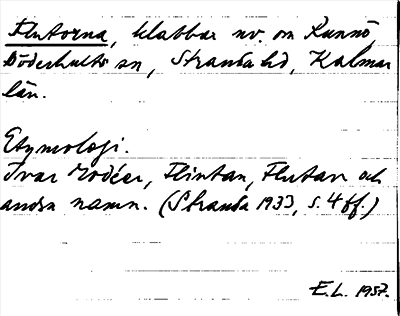 Flutorna, klabbar nv. om Runnö,
Döderhults sn, Stranda hd, Kalmar
län.
Etymologi.
Ivar Modéer, Flintan, Flutan och
andra namn. (Stranda 1933, s. 4 ff.)
E.L. 1957.